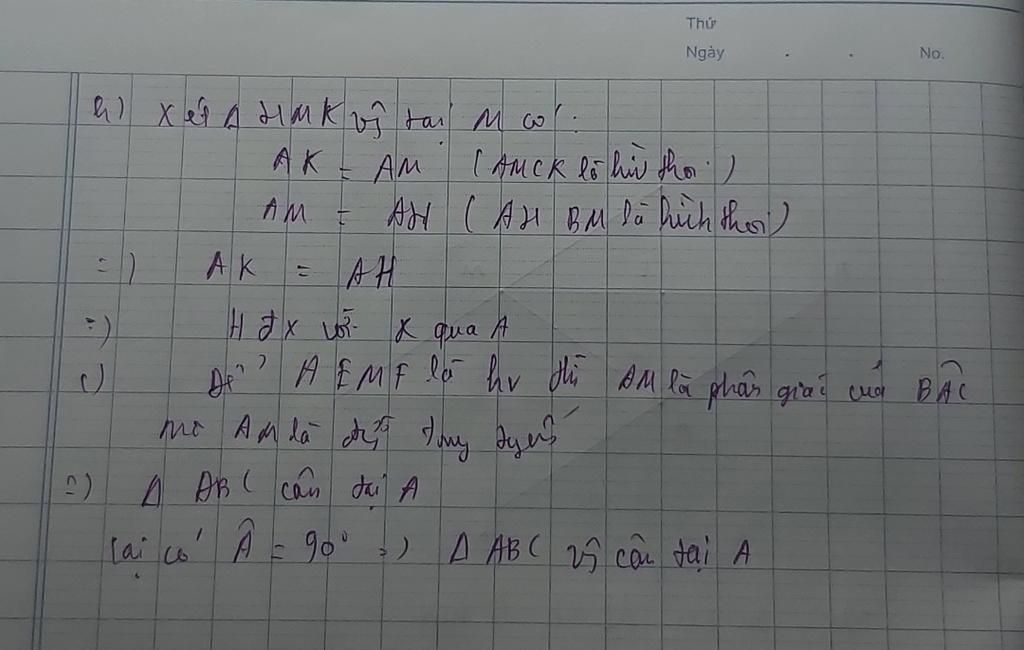 Thứ
Ngày . . No.
b) Xét Δ HMK vg tại M có:
AK = AM (AMCK là hình thoi)
AM = AH (AHBM là hình thoi)
=) AK = AH
=) H đx với K qua A
c) Để AEMF là hv thì AM là phân giác của BÂC
mà AM là đg trung tuyến
=) Δ ABC cân tại A
lại có Â = 90° =) Δ ABC vg cân tại A